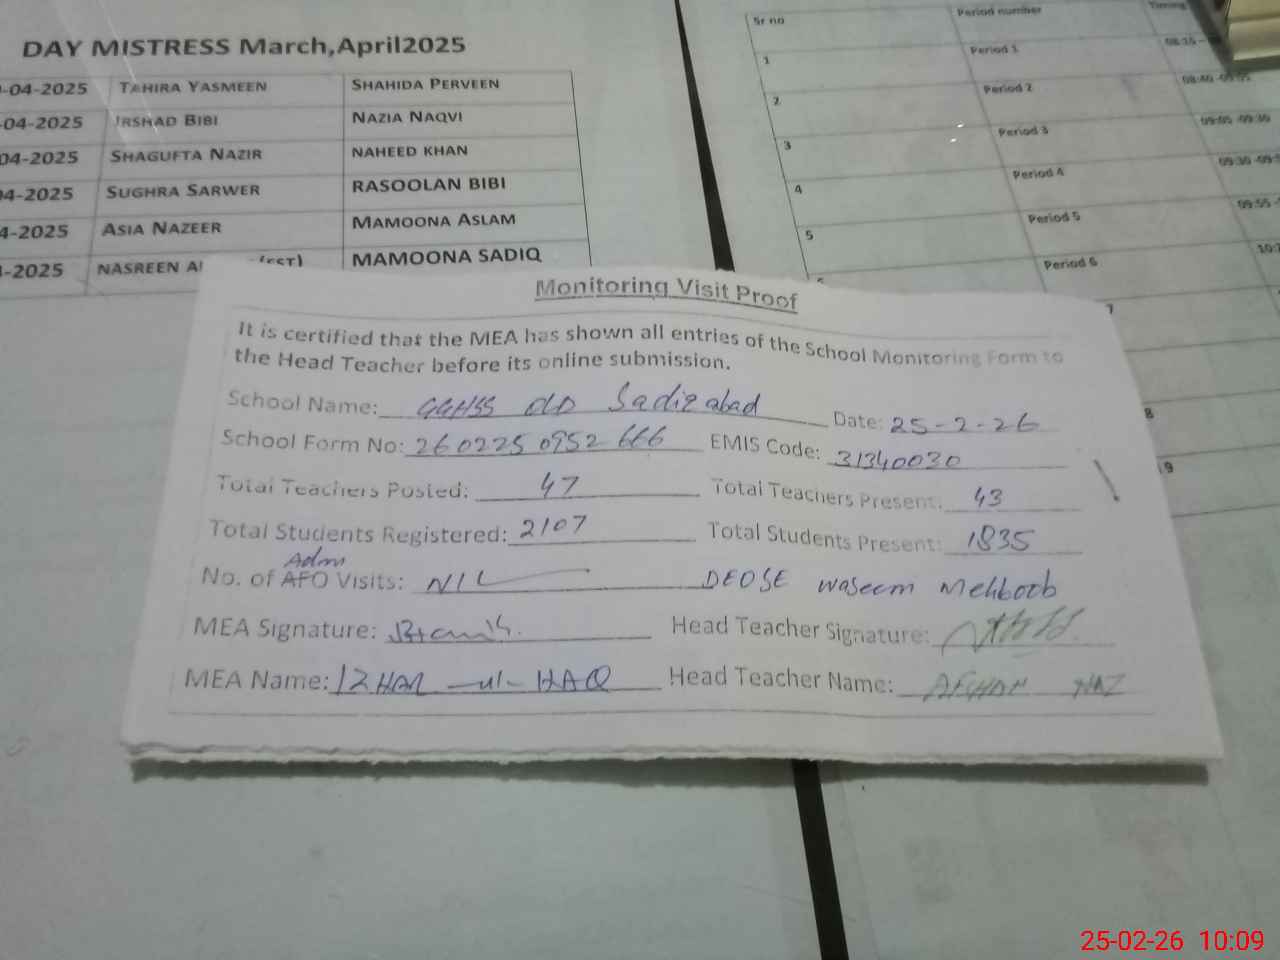 DAY MISTRESS March,April2025
-04-2025 TAHIRA YASMEEN SHAHIDA PERVEEN
-04-2025 IRSHAD BIBI NAZIA NAQVI
04-2025 SHAGUFTA NAZIR NAHEED KHAN
04-2025 SUGHRA SARWER RASOOLAN BIBI
4-2025 ASIA NAZEER MAMOONA ASLAM
-2025 NASREEN MAMOONA SADIQ
Sr no Period number Timing
1 Period 1 08:15
2 Period 2 08:40 -09:05
3 Period 3 09:05 -09:30
4 Period 4 09:30
5 Period 5 09:55
Period 6
7
8
9
Monitoring Visit Proof
It is certified that the MEA has shown all entries of the School Monitoring Form to
the Head Teacher before its online submission.
School Name: GGHSS OLD Sadiqabad Date: 25-2-26
School Form No: 260225 0952 666 EMIS Code: 31340030
Total Teachers Posted: 47 Total Teachers Present: 43
Total Students Registered: 2107 Total Students Present: 1835
Adm
No. of AFO Visits: NIL DEOSE waseem Mehboob
MEA Signature: Head Teacher Signature:
MEA Name: IZHAR -ul- HAQ Head Teacher Name: AFSHAN NAZ
25-02-26 10:09